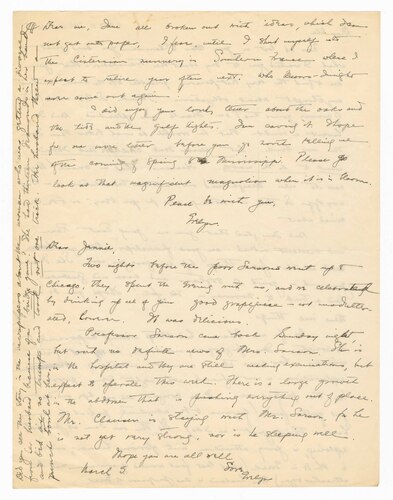 Dear me, I am all broken out with ideas, which does
not get onto paper, I fear, until I shut myself into
the Cistercian nunnery in Southern France where I
expect to retire year after next. Who knows - I might
never come out again.
I did enjoy your lovely letter about the oaks and
the tides and the Gulf lights. I am saving it. I hope
for one more letter before you go north telling me
of the coming of Spring to Mississippi. Please go
look at that magnificent magnolia when it is in bloom.
Peace be with you,
Evelyn.
Dear Jennie,
Two nights before the poor Sarsons went up to
Chicago, they spent the evening with us, and we celebrated
by drinking up all of your good grapejuice - not
, however. It was delicious.
Professor Sarson came back Sunday night,
but with no definite news of Mrs. Sarson. She is
in the hospital and they are still making examinations, but
expect to operate this week. There is a large growth
in the abdomen that is pushing everything out of place.
Mr. Clausen is staying with Mr. Sarson, for he
is not yet very strong, nor is he sleeping well.
I hope you are all well.
Love,
March 5. Evelyn
Did you see the story in the newspapers about the woman who was getting a divorce
from her husband because of a bridge game? She had thirteen diamonds in her hand
and bid